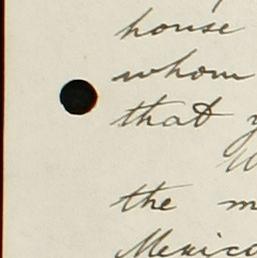 house
whom
that
the
Mexico